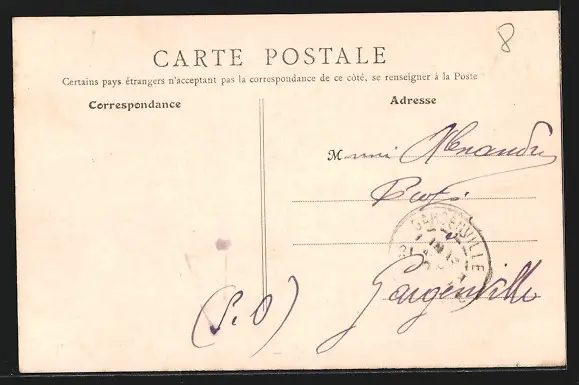 8
CARTE POSTALE
Certains pays étrangers n'acceptant pas la correspondance de ce côté, se renseigner à la Poste
Correspondance
Adresse
M
GARGENVILLE
Gargenville
(S.O)